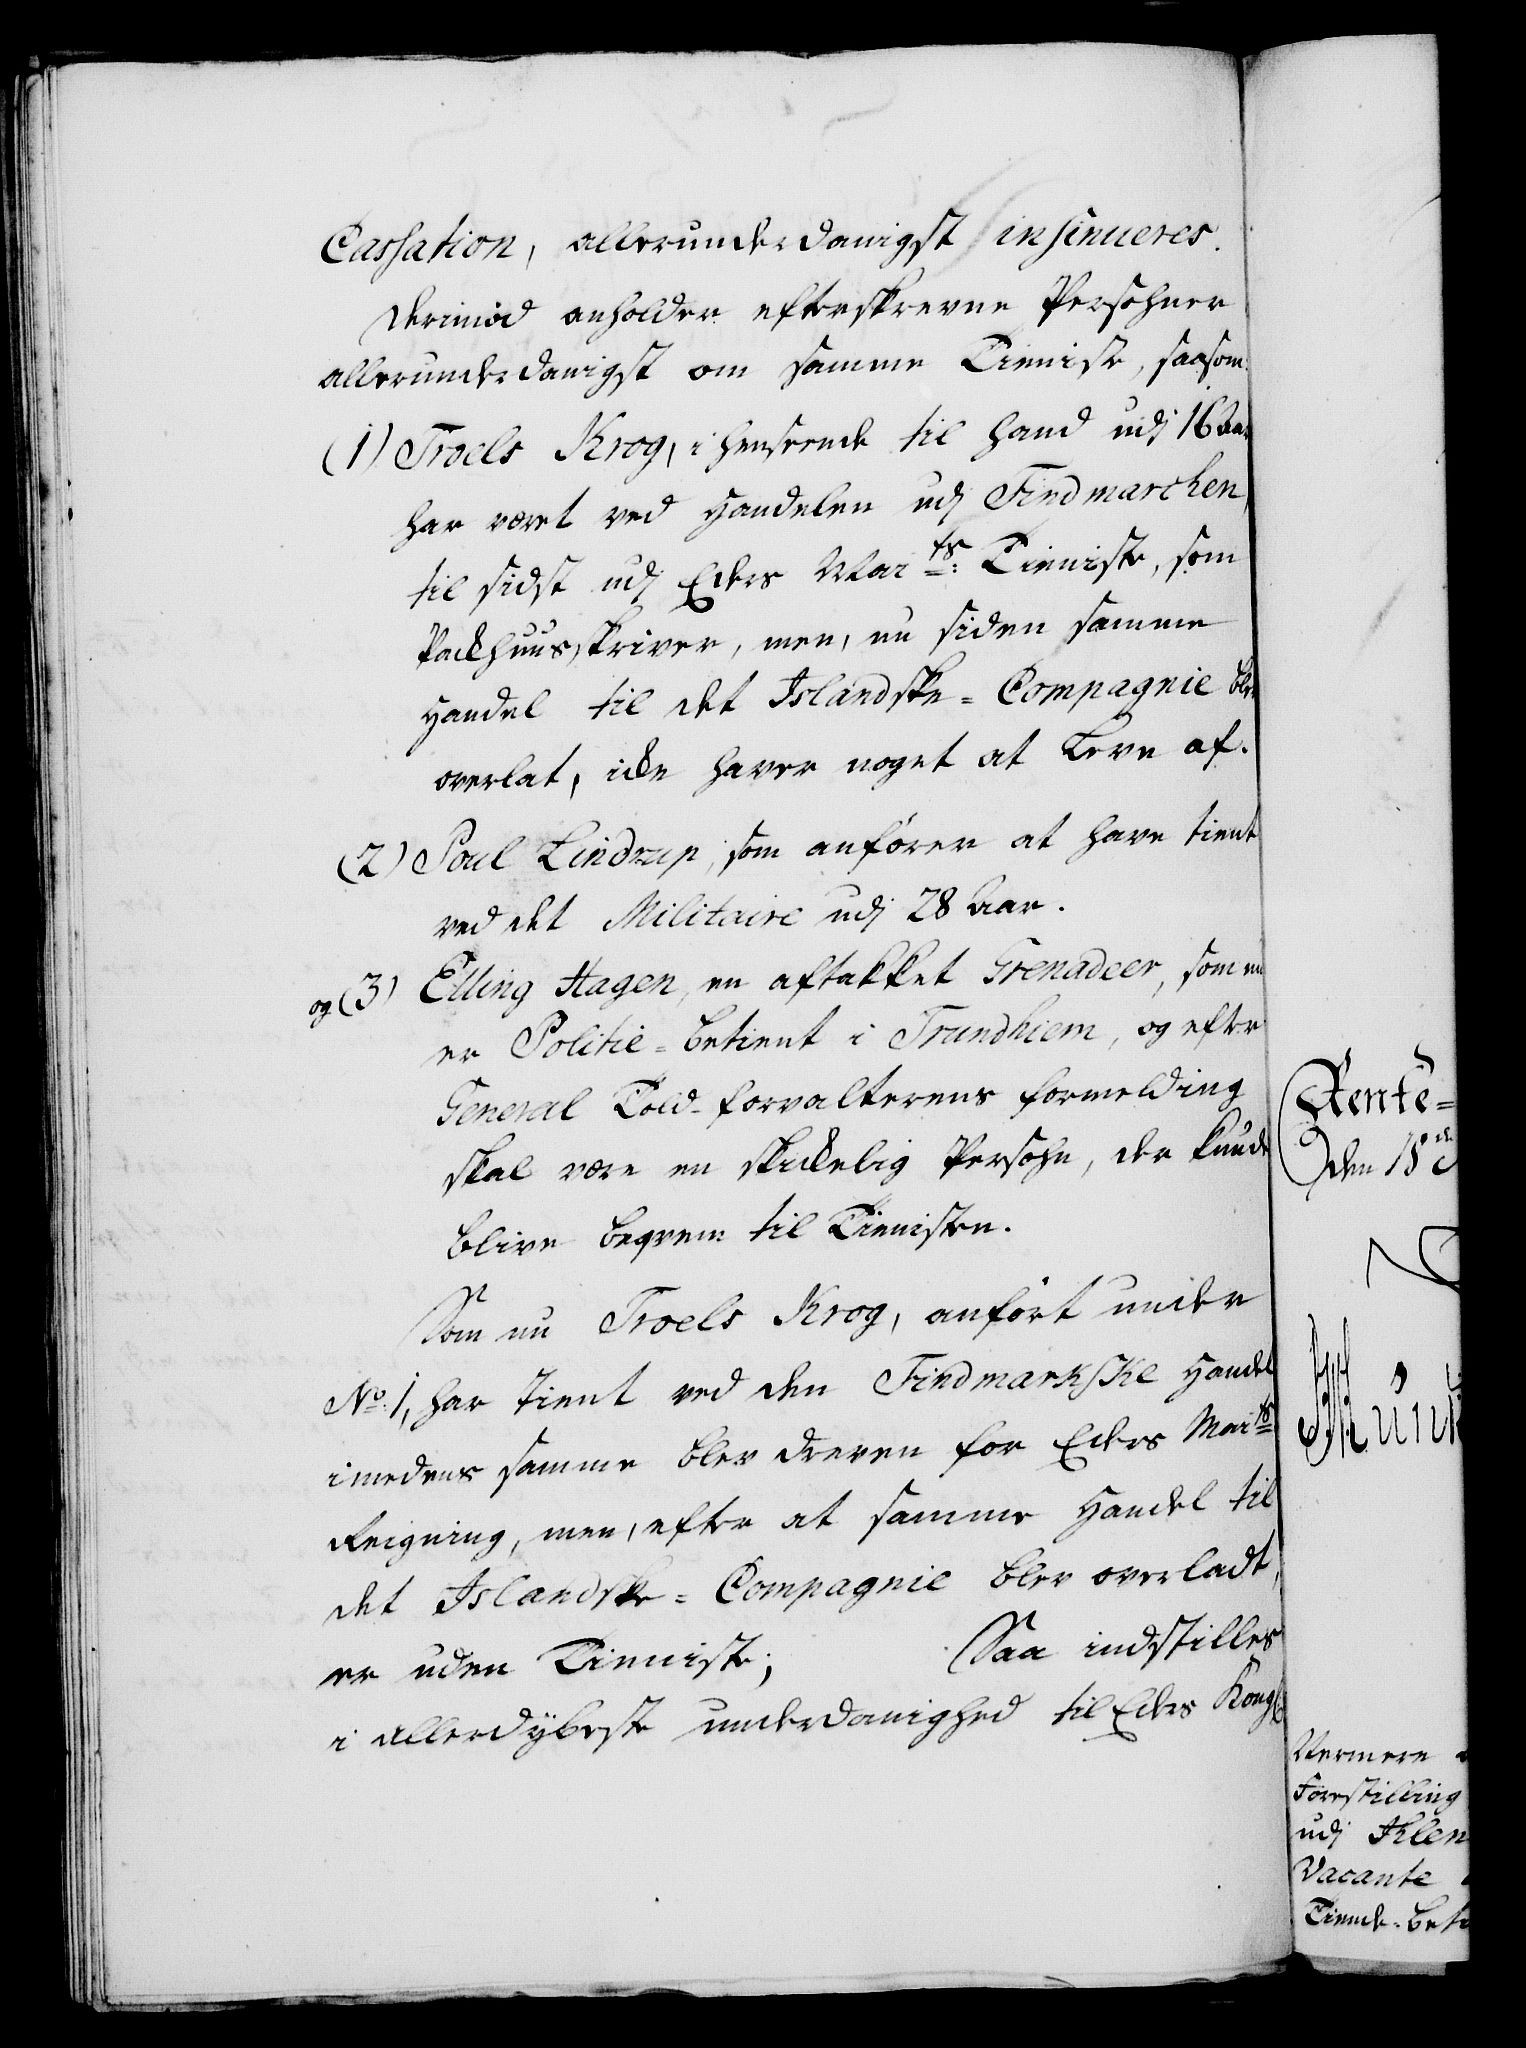 Cassation, allerunderdanigst insinueres.
Derimod anholder efterskrevne Persohner
allerunderdanigst om samme Tieniste, saasom:
(1) Troels Krog, i henseende til hand udj 16 Aar
har været ved Handelen udj Findmarchen,
til sidst udj Eders Mai<sup>ts</sup>: Tieniste, som
Packhuusskriver, men, nu siden samme
Handel til det Islandske-Compagnie blev
overlat, icke haver noget at Leve af.
(2) Poul Lindrup, som anfører at have tient
ved det Militaire udj 28 Aar.
og (3) Elling Hagen, en aftakket Grenadeer, som nu
er Politie-betient i Trundhiem, og efter
General Told-forvalterens formelding
skal være en skickelig Persohn, der kunde
blive beqvem til Tienisten.
Som nu Troels Krog, anført under
No: 1, har tient ved den Findmarkske Handel
imedens samme blev dreven for Eders Mai<sup>ts</sup>
Reigning, men, efter at samme Handel til
det Islandske-Compagnie blev overladt,
er uden Tieniste; Saa indstilles
i allerdybeste underdanighed til Eders Kongl
Rente=
den 18<sup>de</sup>
Nermere
Forestilling
udj
Vacante
Tiende-bet